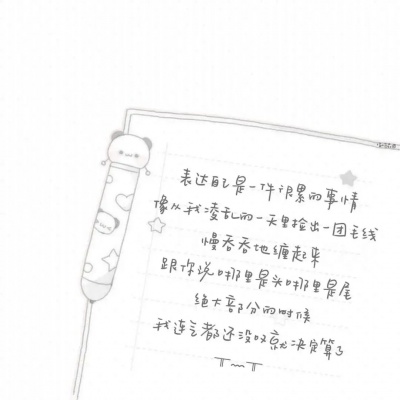 表达自己是一件很累的事情
像从我凌乱的一天里捡出一团毛线
慢吞吞地缠起来
跟你说哪里是头哪里是尾
绝大部分的时候
我连它都还没叹就决定算了
T~T